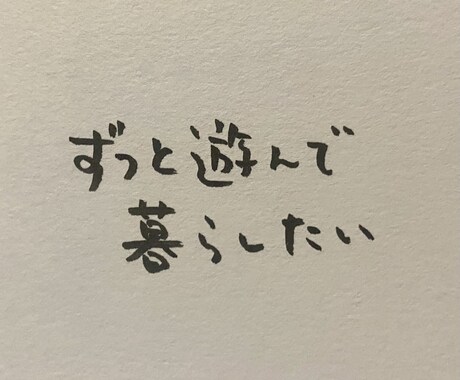 ずっと遊んで
暮らしたい